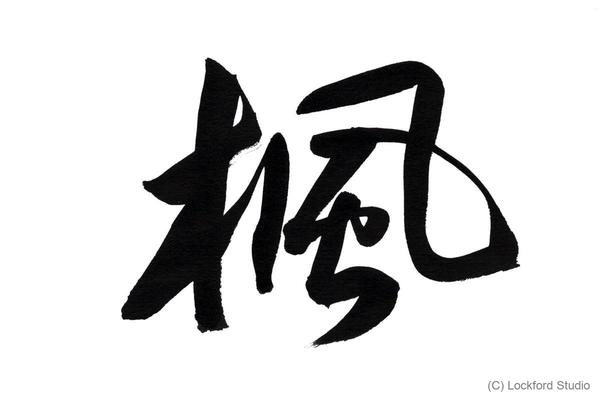 楓
(C) Lockford Studio